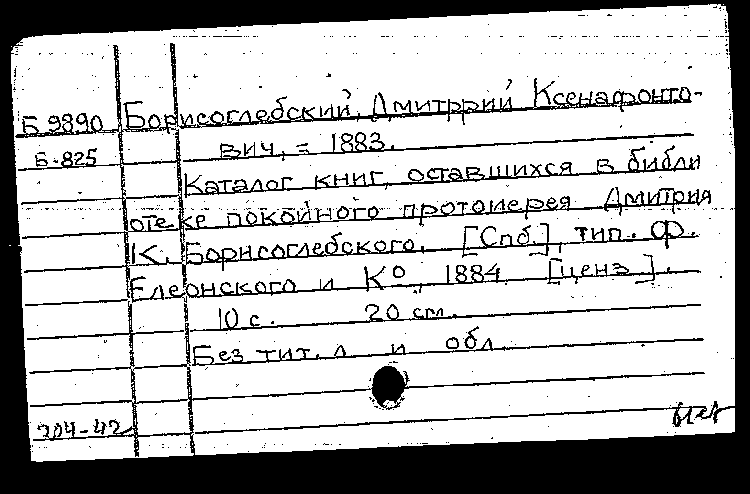 Б 9890 Борисоглебский, Дмитррий Ксенафонто-
Б-825 вич, = 1883.
Каталог книг, оставшихся в библи
отеке покойного протоиерея Дмитрия
К. Борисоглебского. [Спб.], тип. Ф.
Елеонского и Ко, 1884 [ценз].
10 с. 20 см.
Без тит. л и обл.
204-42